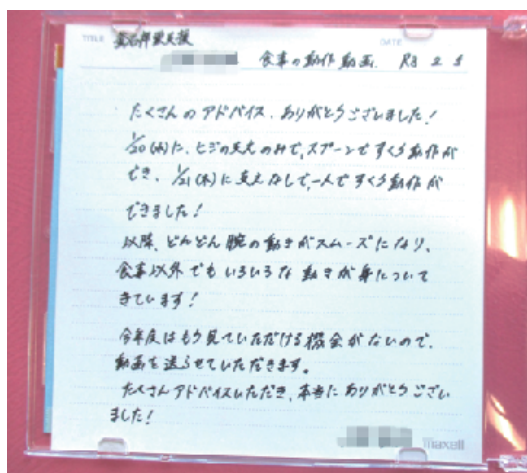 TITLE
DATE
食事の動作動画 R3 2 5
たくさんのアドバイス、ありがとうございました!
1/20(水)に、ヒジの支えのみで、スプーンですくう動作が
でき、1/21(木)に支えなしで、一人ですくう動作が
できました!
以降、どんどん腕の動きがスムーズになり、
食事以外でもいろいろな動きが身について
きています!
今年度はもう見ていただける機会がないので、
動画を送らせていただきます。
たくさんアドバイスいただき、本当にありがとうござい
ました!
maxell